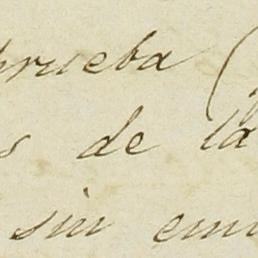 prueba (
s de la
sin em